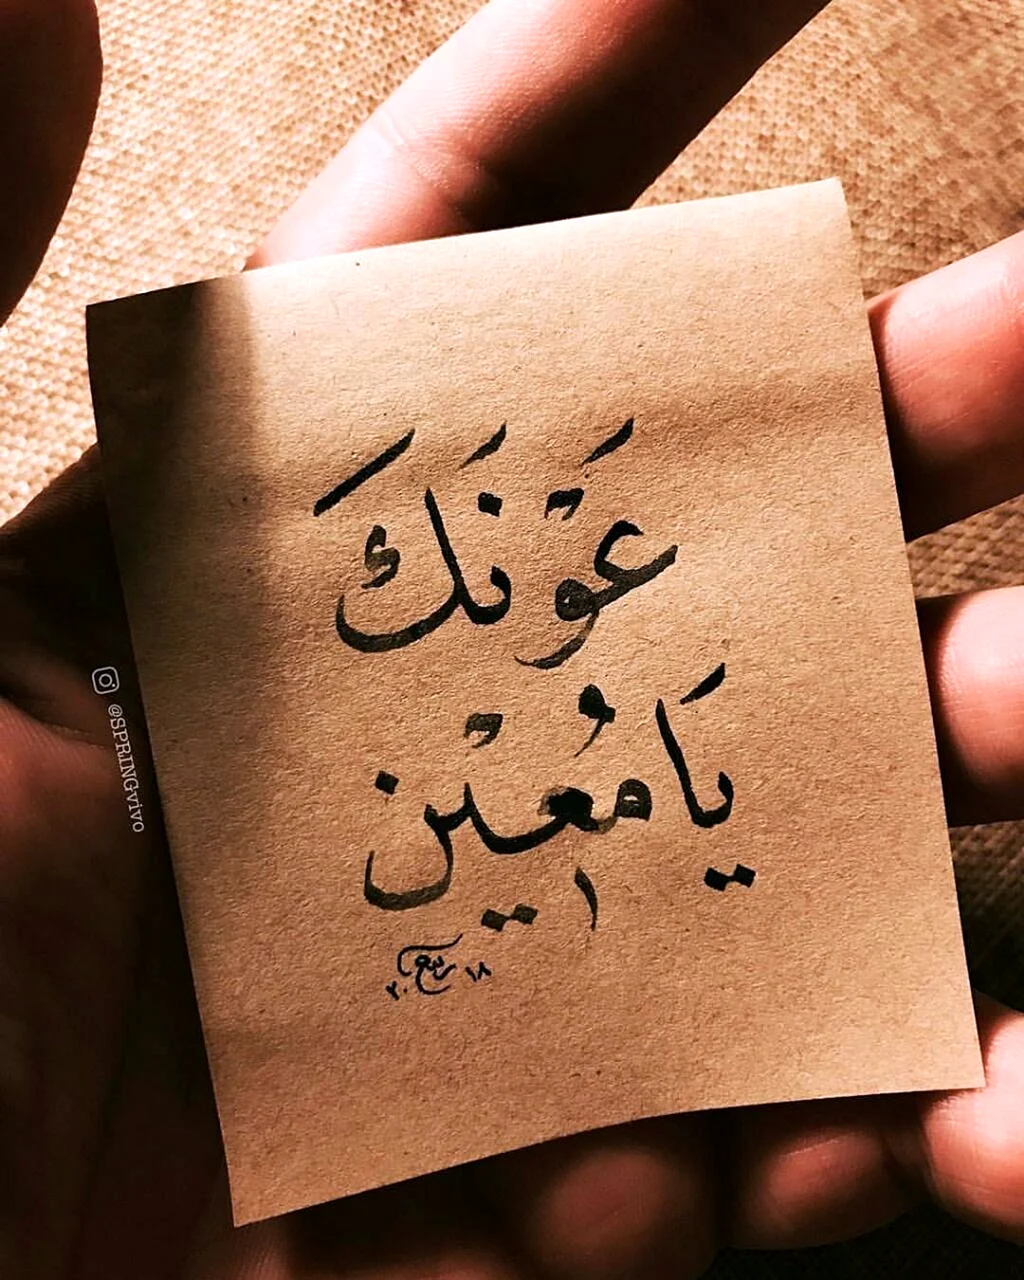 عَوْنَكَ
يَا مُعِيْن
ربيع ٢٠١٨
@SPRINGvivo